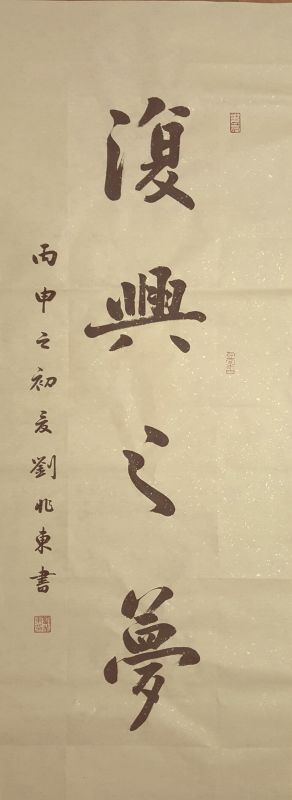 復興之夢
丙申之初夏劉兆東書